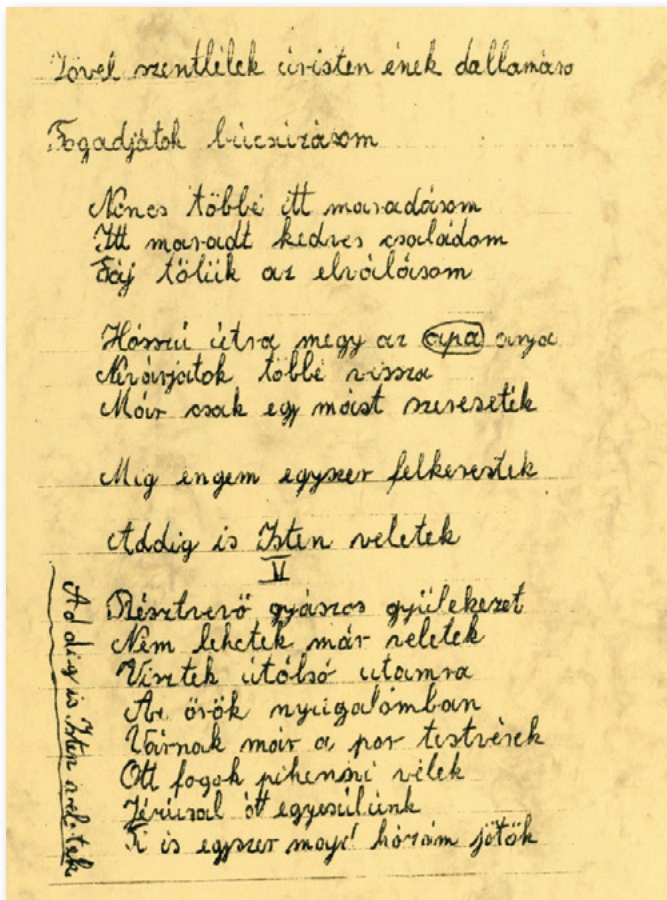 Jövel szentlélek úristen ének dallamára
Fogadjátok búcsúzásom
Nincs többé itt maradásom
Itt maradt kedves családom
Fáj tőlük az elválásom
Hosszú útra megy az apa anya
Ne várjátok többé vissza
Már csak egy mást szeresetek
Mig engem egyszer felkerestek
Addig is Isten veletek
V
Résztvevő gyászos gyülekezet
Nem lehetek már veletek
Visztek útólsó utamra
Az örök nyugalomban
Várnak már a por testvérek
Ott fogok pihenni vélek
ott egyesülünk
Ti is egyszer majd hózám jötök
Addig is Isten veletek